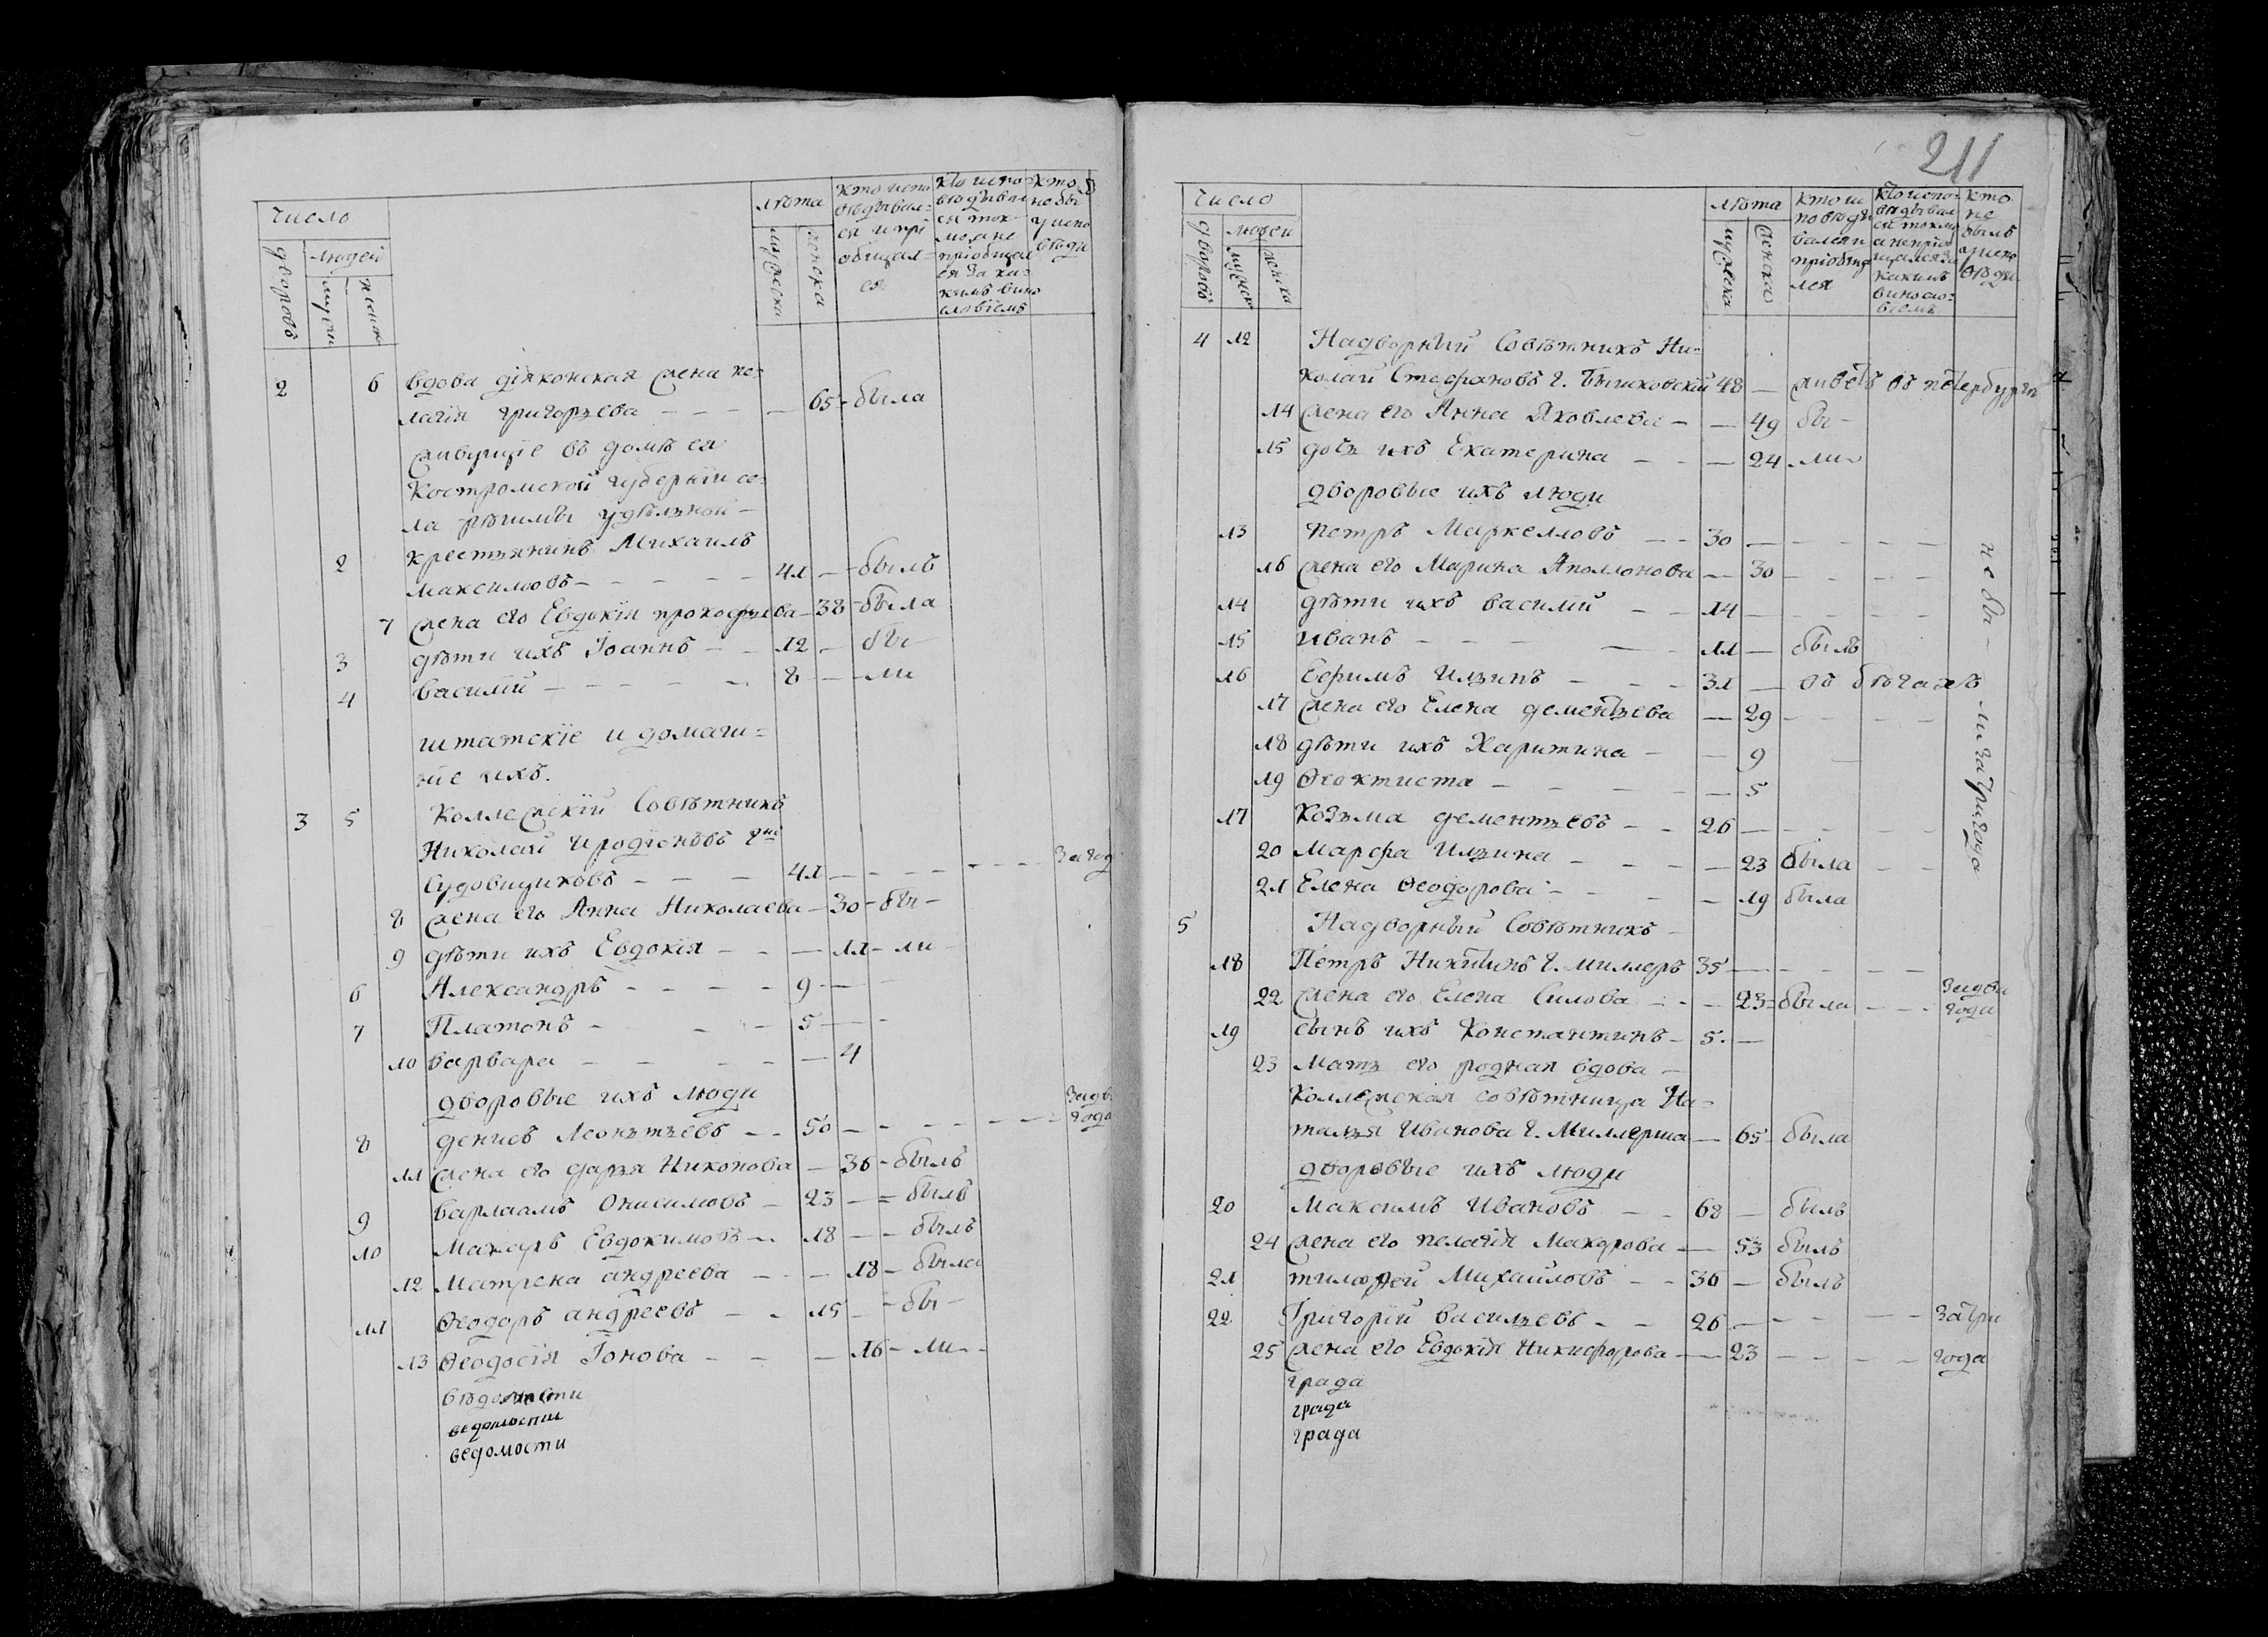 число
людей
дворовъ
мужеи
женск
лѣта
мужеска
женска
кто испо
вѣдывал=
ся и прі
общал=
ся
кто испо=
вѣдывал
ся ток=
мо а не
пріобщал
ся за ка=
кимъ вино
словіемъ
кто
не бы
у испо
вѣди
2 6 вдова діяконская жена пе=
лагія григорьева — 65 — была
живущіе въ домѣ ея
Костромской губерніи се=
ла рѣшмы удѣльной —
2 крестьянинъ Михаилъ
максимовъ — 41 — былъ
7 жена его Евдокія прокофьева — 38 — была
3 дѣти ихъ Іоаннъ — 12 — бы —
4 василій — 8 — ли
штатскіе и домаш=
ніе ихъ.
3 5 Коллежскій Совѣтникъ
Николай Иродіоновъ гнъ
Судовщиковъ — 41 — — — за год
8 жена его Анна Николаева — 30 — бы —
9 дѣти ихъ Евдокія — 11 — ли —
6 Александръ — 9 —
7 Платонъ — 5 —
10 варвара — 4
дворовые ихъ люди
8 денисъ Леонтьевъ — 50 — — — за два года
11 жена его дарья Никонова — 36 — былъ
9 варлаамъ Онисимовъ — 23 — былъ
10 Макаръ Евдокимовъ — 18 — былъ
12 Матрена андреева — 18 — была
11 Ѳеодоръ андреевъ — 15 — бы —
13 Ѳеодосія Іонова — 16 — ли —
вѣдомости
ведомости
ведомости
211
число
людеи
дворовъ
мужеск
женска
лѣта
мужеска
женска
кто и
повѣды
вался и
пріобща
лся
кто испо=
вѣдывал
ся токмо
а не пріоб
щался за
какимъ
виносло=
віемъ
кто
не
былъ
у испо
вѣди
4 12 Надворный Совѣтникъ Ни=
колай Стефановъ г. Бышковскій 48 — живетъ въ петербургѣ
14 жена его Анна Яковлева — 49 бы —
15 дочь ихъ Екатерина — 24 ли
дворовые ихъ люди
13 петръ Маркелловъ — 30 —
16 жена его Марина Аполлонова — 30 —
14 дѣти ихъ василій — 14 —
15 иванъ — 11 — былъ
16 Ефимъ Ильинъ — 31 — въ бѣгахъ
17 жена его Елена дементьева — 29 —
18 дѣти ихъ Харитина — 9
19 Ѳеоктиста — 5
17 Козьма дементьевъ — 26 —
20 Марфа Ильина — 23 была
21 Елена Ѳеодорова — 19 была
не бы — ли за три года
5 Надворный Совѣтникъ —
18 Петръ Никитинъ г. Миллеръ 35 —
22 жена его Елена Силова — 23 = была — за два года
19 сынъ ихъ Константинъ — 5. —
23 мать его родная вдова —
Коллежская совѣтница На=
талья Иванова г. Миллерша — 65 была
дворовые ихъ люди
20 Максимъ Ивановъ — 68 — былъ
24 жена его пелагія Макарова — 53 былъ
21 тимофей Михайловъ — 36 — былъ
22 Григорій васильевъ — 26 — — — за три
25 жена его Евдокія Никифорова — 23 — — — года
града
града
града